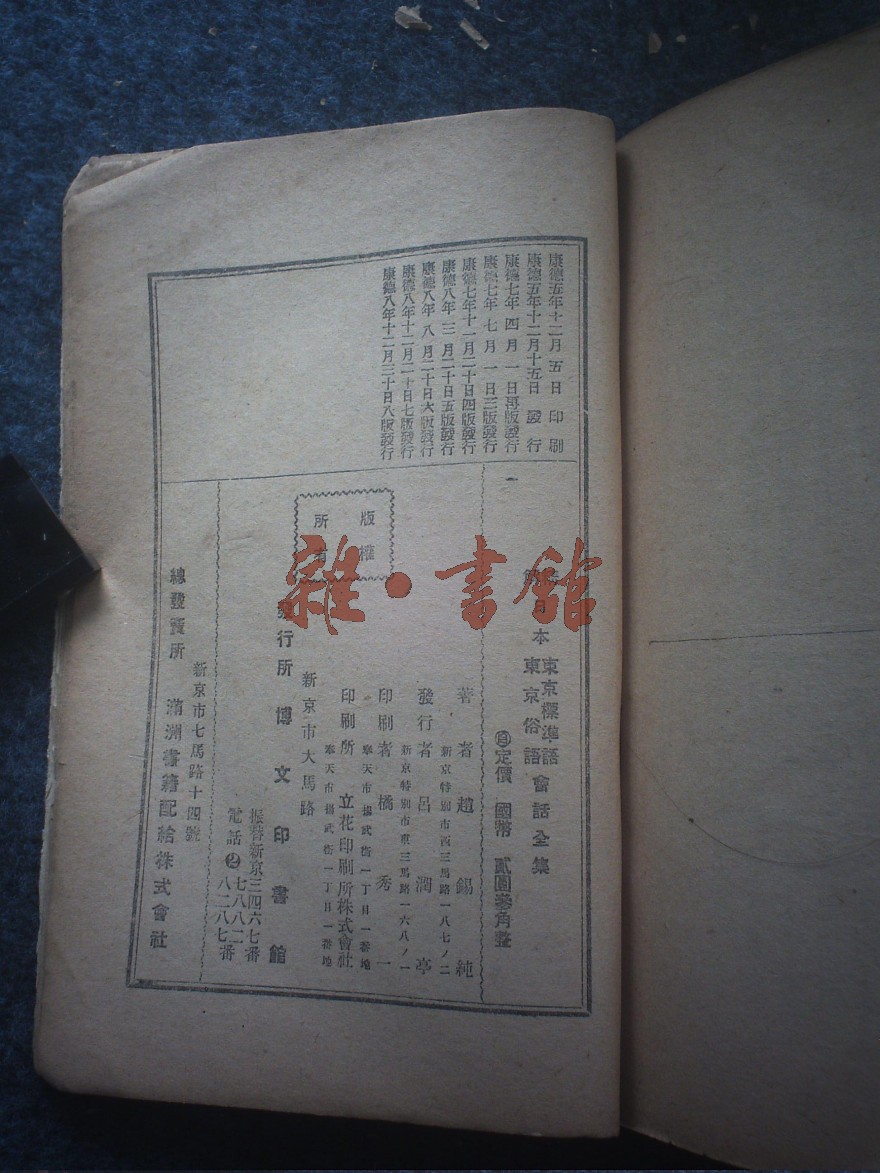 康德五年十二月五日印刷
康德五年十二月十五日發行
康德七年四月一日再版發行
康德七年七月一日三版發行
康德七年十一月二十日四版發行
康德八年三月二十日五版發行
康德八年八月二十日六版發行
康德八年十二月二十日七版發行
康德八年十二月三十日八版發行
日本
東京標準語
東京俗語
會話全集
定價 國幣 貳圓參角整
著者 趙錫純
新京特別市西三馬路一八七ノ二
發行者 呂潤亭
新京特別市東三馬路一六八ノ一
印刷者 橘秀一
奉天市揚武街一丁目一番地
印刷所 立花印刷所株式會社
奉天市揚武街一丁目一番地
版權
所有
新京市大馬路
發行所 博文印書館
振替新京三四六七番
電話②七八八二
八二八七番
新京市七馬路十四號
總發賣所 滿洲書籍配給株式會社
雜·書館